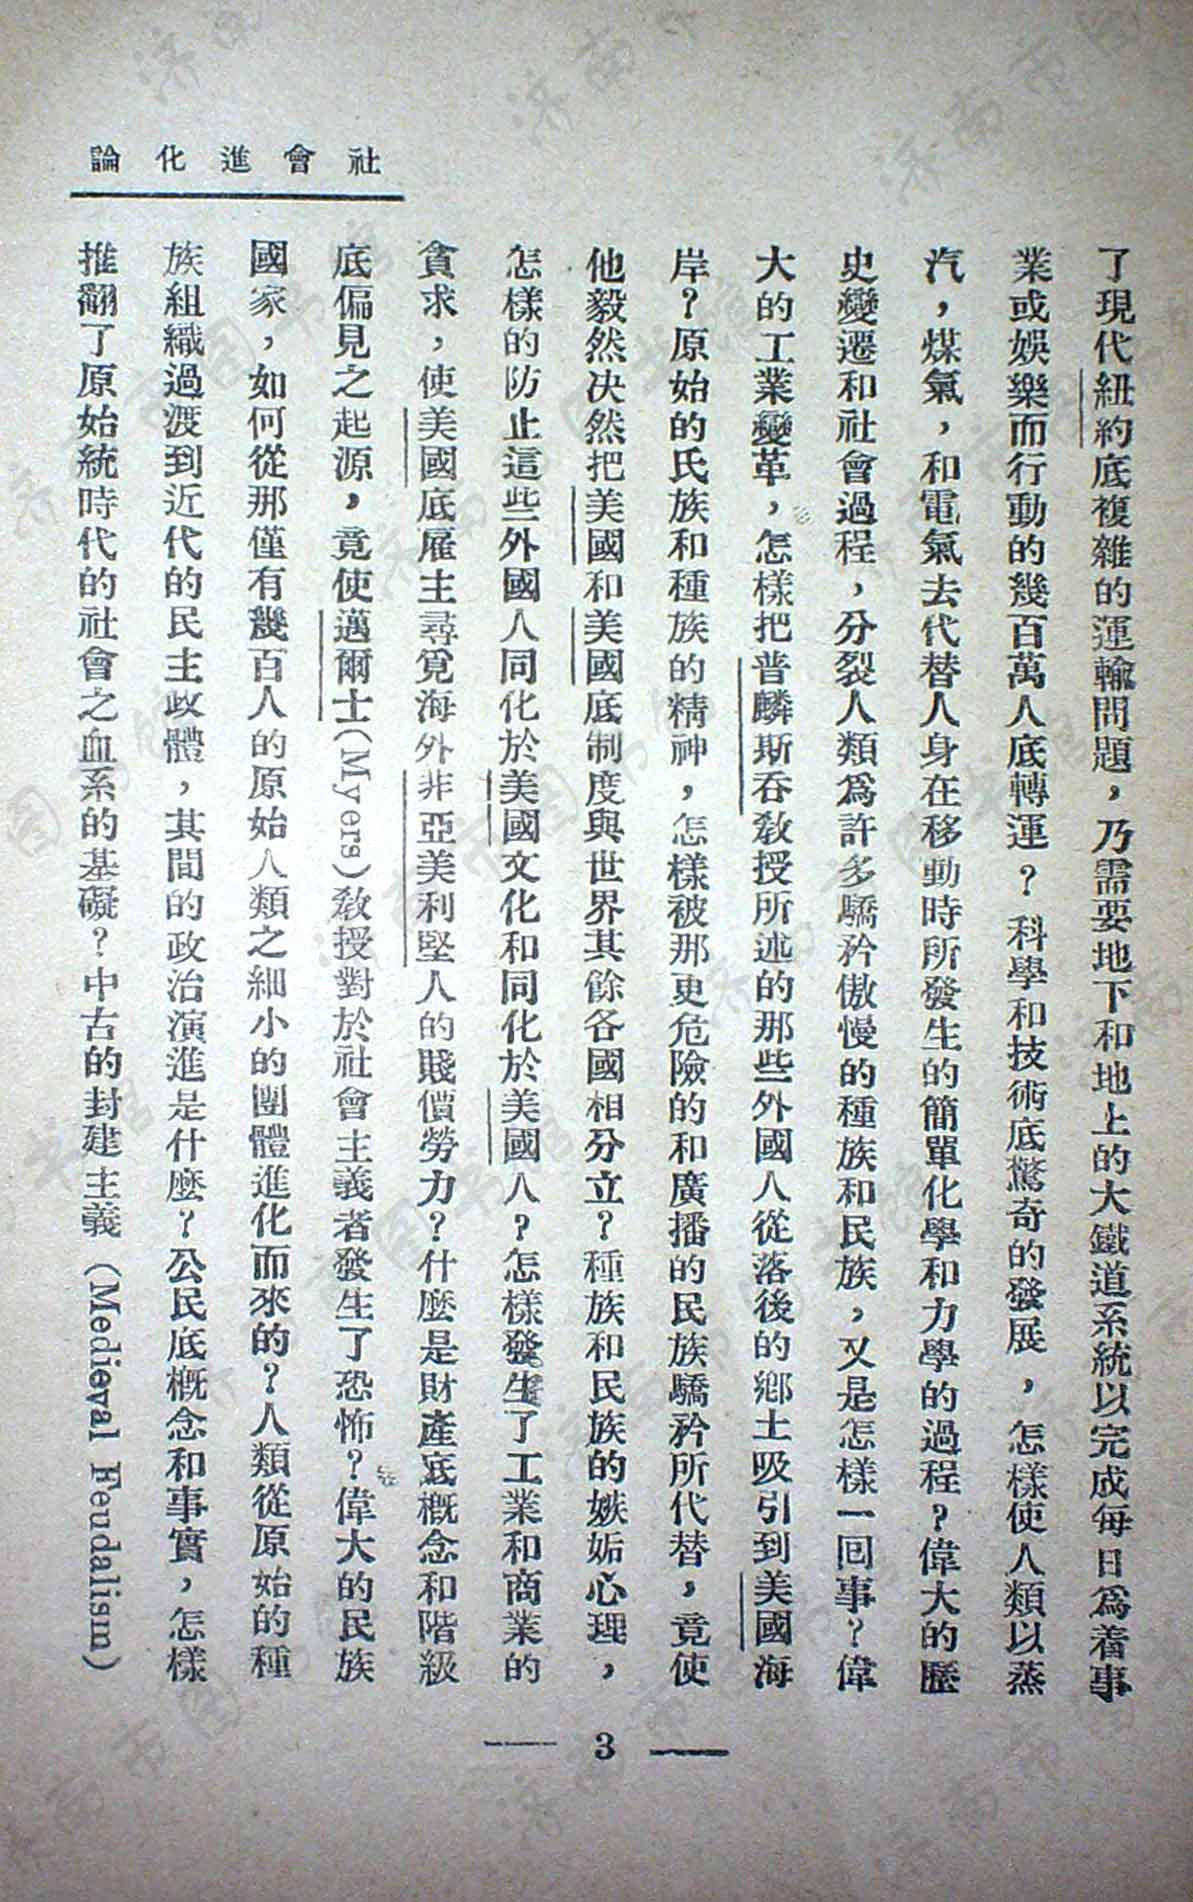 社會進化論
了現代紐約底複雜的運輸問題，乃需要地下和地上的大鐵道系統以完成每日爲着事
業或娛樂而行動的幾百萬人底轉運？科學和技術底驚奇的發展，怎樣使人類以蒸
汽，煤氣，和電氣去代替人身在移動時所發生的簡單化學和力學的過程？偉大的歷
史變遷和社會過程，分裂人類爲許多驕矜傲慢的種族和民族，又是怎樣一回事？偉
大的工業變革，怎樣把普麟斯吞敎授所述的那些外國人從落後的鄉土吸引到美國海
岸？原始的氏族和種族的精神，怎樣被那更危險的和廣播的民族驕矜所代替，竟使
他毅然决然把美國和美國底制度與世界其餘各國相分立？種族和民族的嫉妬心理，
怎樣的防止這些外國人同化於美國文化和同化於美國人？怎樣發生了工業和商業的
貪求，使美國底雇主尋覓海外非亞美利堅人的賤價勞力？什麼是財產底槪念和階級
底偏見之起源，竟使邁爾士(Myers)敎授對於社會主義者發生了恐怖？偉大的民族
國家，如何從那僅有幾百人的原始人類之細小的團體進化而來的？人類從原始的種
族組織過渡到近代的民主政體，其間的政治演進是什麼？公民底槪念和事實，怎樣
推翻了原始統時代的社會之血系的基礎？中古的封建主義(Medieval Feudalism)
— 3 —
济南市图书馆